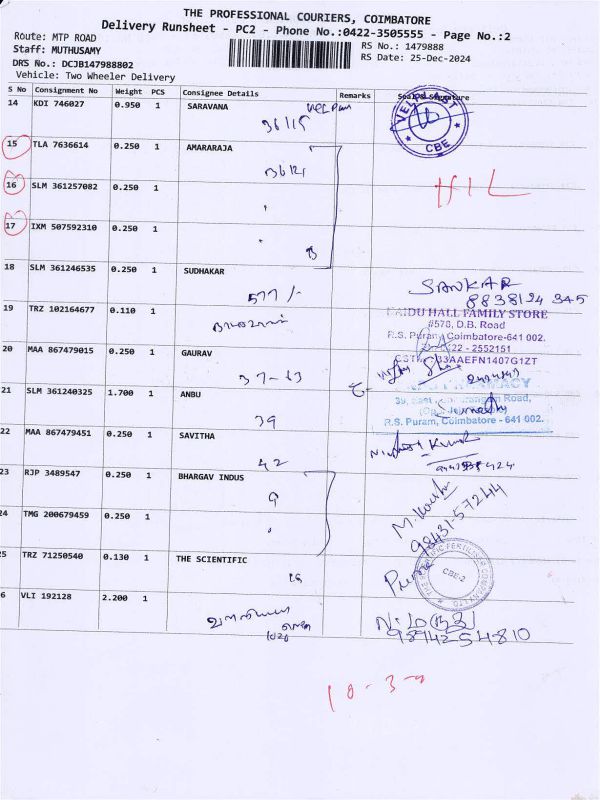 THE PROFESSIONAL COURIERS, COIMBATORE
Delivery Runsheet - PC2 - Phone No.:0422-3505555 - Page No.:2
Route: MTP ROAD
Staff: MUTHUSAMY
DRS No.: DCJB147988802
Vehicle: Two Wheeler Delivery
RS No.: 1479888
RS Date: 25-Dec-2024
S No Consignment No Weight PCS Consignee Details Remarks Seal & Signature
14 KDI 746027 0.950 1 SARAVANA
36/15
VELPLAST
CBE
15 TLA 7636614 0.250 1 AMARARAJA
16 SLM 361257082 0.250 1
HIL
17 IXM 507592310 0.250 1
18 SLM 361246535 0.250 1 SUDHAKAR
577 /-
SANKAR
8838124 345
19 TRZ 102164677 0.110 1
NAIDU HALL FAMILY STORE
#578, D.B. Road
R.S. Puram, Coimbatore-641 002.
2552151
33AAEFN1407G1ZT
20 MAA 867479015 0.250 1 GAURAV
37-63
21 SLM 361240325 1.700 1 ANBU
39
PHARMACY
39, East Road,
R.S. Puram, Coimbatore - 641 002.
22 MAA 867479451 0.250 1 SAVITHA
42
Kumar
23 RJP 3489547 0.250 1 BHARGAV INDUS
9
24 TMG 200679459 0.250 1
98431-57244
25 TRZ 71250540 0.130 1 THE SCIENTIFIC
THE SCIENTIFIC FERTILISER COMPANY
CBE-2
6 VLI 192128 2.200 1
1020
9894254810
10-3-